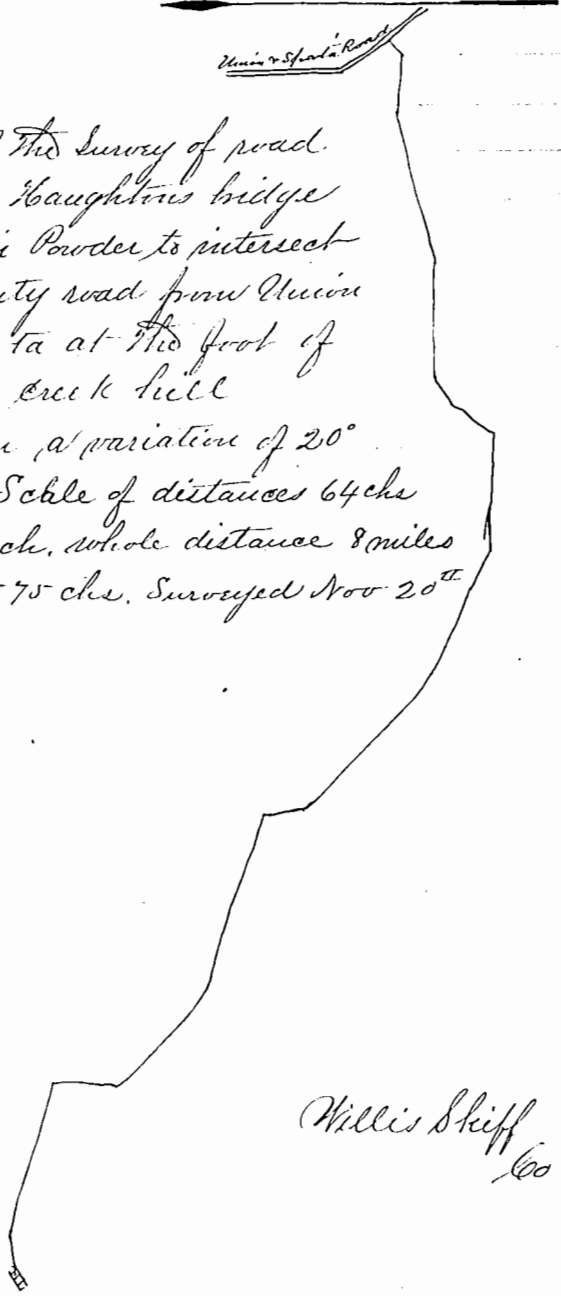 Union & Sparta Road
The Survey of road
Haughtons bridge
Powder to intersect
ty road from Union
ta at The foot of
creek hill
a variation of 20°
Scale of distances 64 chs
ch. whole distance 8 miles
75 chs. Surveyed Nov 20th
Willis Skiff
Co